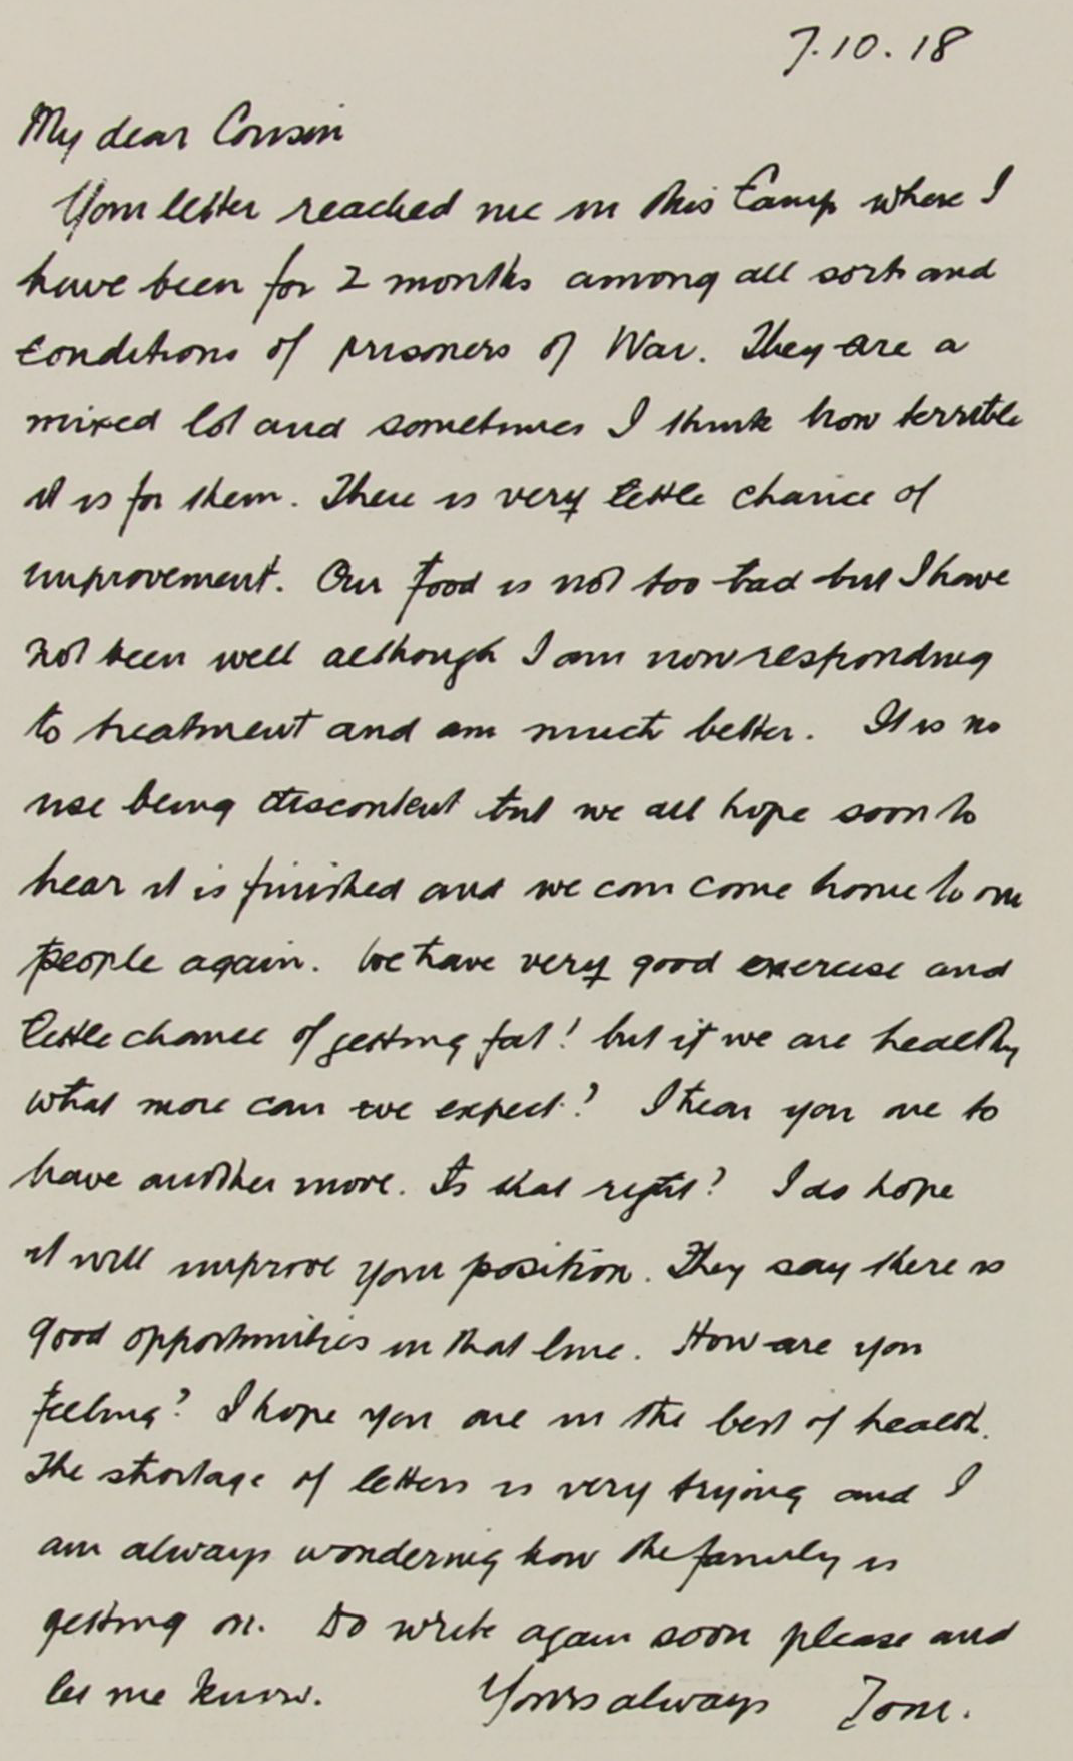 7.10.18
My dear Cousin
Your letter reached me in this Camp where I
have been for 2 months among all sorts and
conditions of prisoners of War. They are a
mixed lot and sometimes I think how terrible
it is for them. There is very little chance of
improvement. Our food is not too bad but I have
not been well although I am now responding
to treatment and am much better. It is no
use being discontent but we all hope soon to
hear it is finished and we can come home to our
people again. We have very good exercise and
little chance of getting fat! but if we are healthy
what more can we expect? I hear you are to
have another move. Is that right? I do hope
it will improve your position. They say there is
good opportunities in that line. How are you
feeling? I hope you are in the best of health.
The shortage of letters is very trying and I
am always wondering how the family is
getting on. Do write again soon please and
let me know. Yours always Tom.